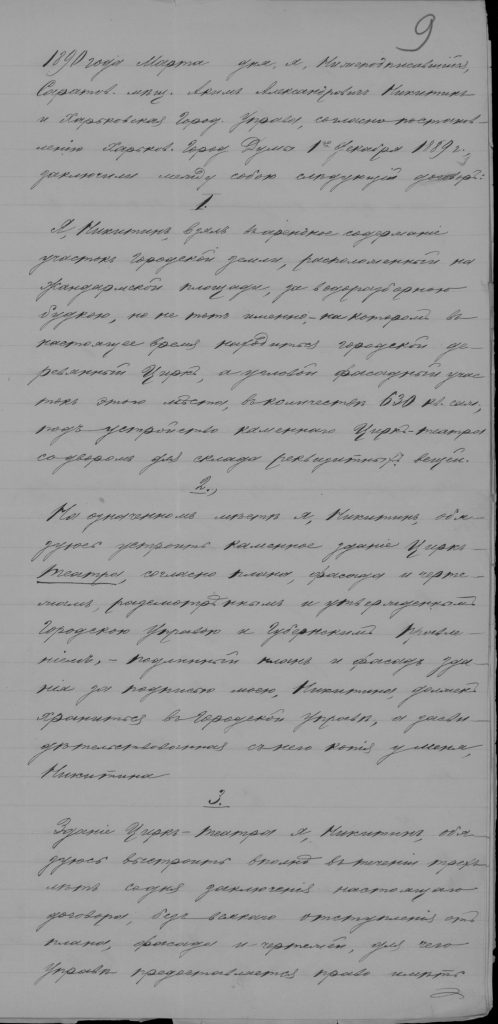 9
1890 года Марта дня, я, Нижеподписавшійся,
Саратов. мѣщ. Акимъ Александровичъ Никитинъ
и Харьковская Город. Управа, согласно постанов-
ленію Харьков. Город Думы 1го Декабря 1889 г.,
заключили между собою слѣдующій договоръ:
1.
Я, Никитинъ, взялъ въ арендное содержаніе
участокъ Городской земли, расположенный на
Жандармской площади, за водоразборною
будкою, но не тотъ именно, на которомъ въ
настоящее время находиться городской де-
ревянный Циркъ, а угловой фасадный учас
токъ этого мѣста, въ количествѣ 630 кв. саж,
подъ устройство каменнаго Циркъ-театра
со дворомъ для склада реквизитныхъ вещей.
2.,
На означенномъ мѣстѣ я, Никитинъ, обя-
зуюсь устроить каменное зданіе Циркъ-
театра, согласно плана, фасада и черте-
жамъ, разсмотрѣннымъ и утвержденнымъ
Городскою Управою и Губернскимъ Правле-
ніемъ, - подлинный планъ и фасадъ зда-
нія за подписью моею, Никитина, долженъ
храниться въ Городской Управѣ, а засви-
дѣтельствованная съ него копія у меня,
Никитина
3.
Зданіе Циркъ-театра я, Никитинъ, обя-
зуюсь выстроить вполнѣ въ теченіи трехъ
лѣтъ со дня заключенія настоящаго
договора, безъ всякаго отступленія отъ
плана, фасада и чертежей, для чего
Управѣ предоставляется право имѣть